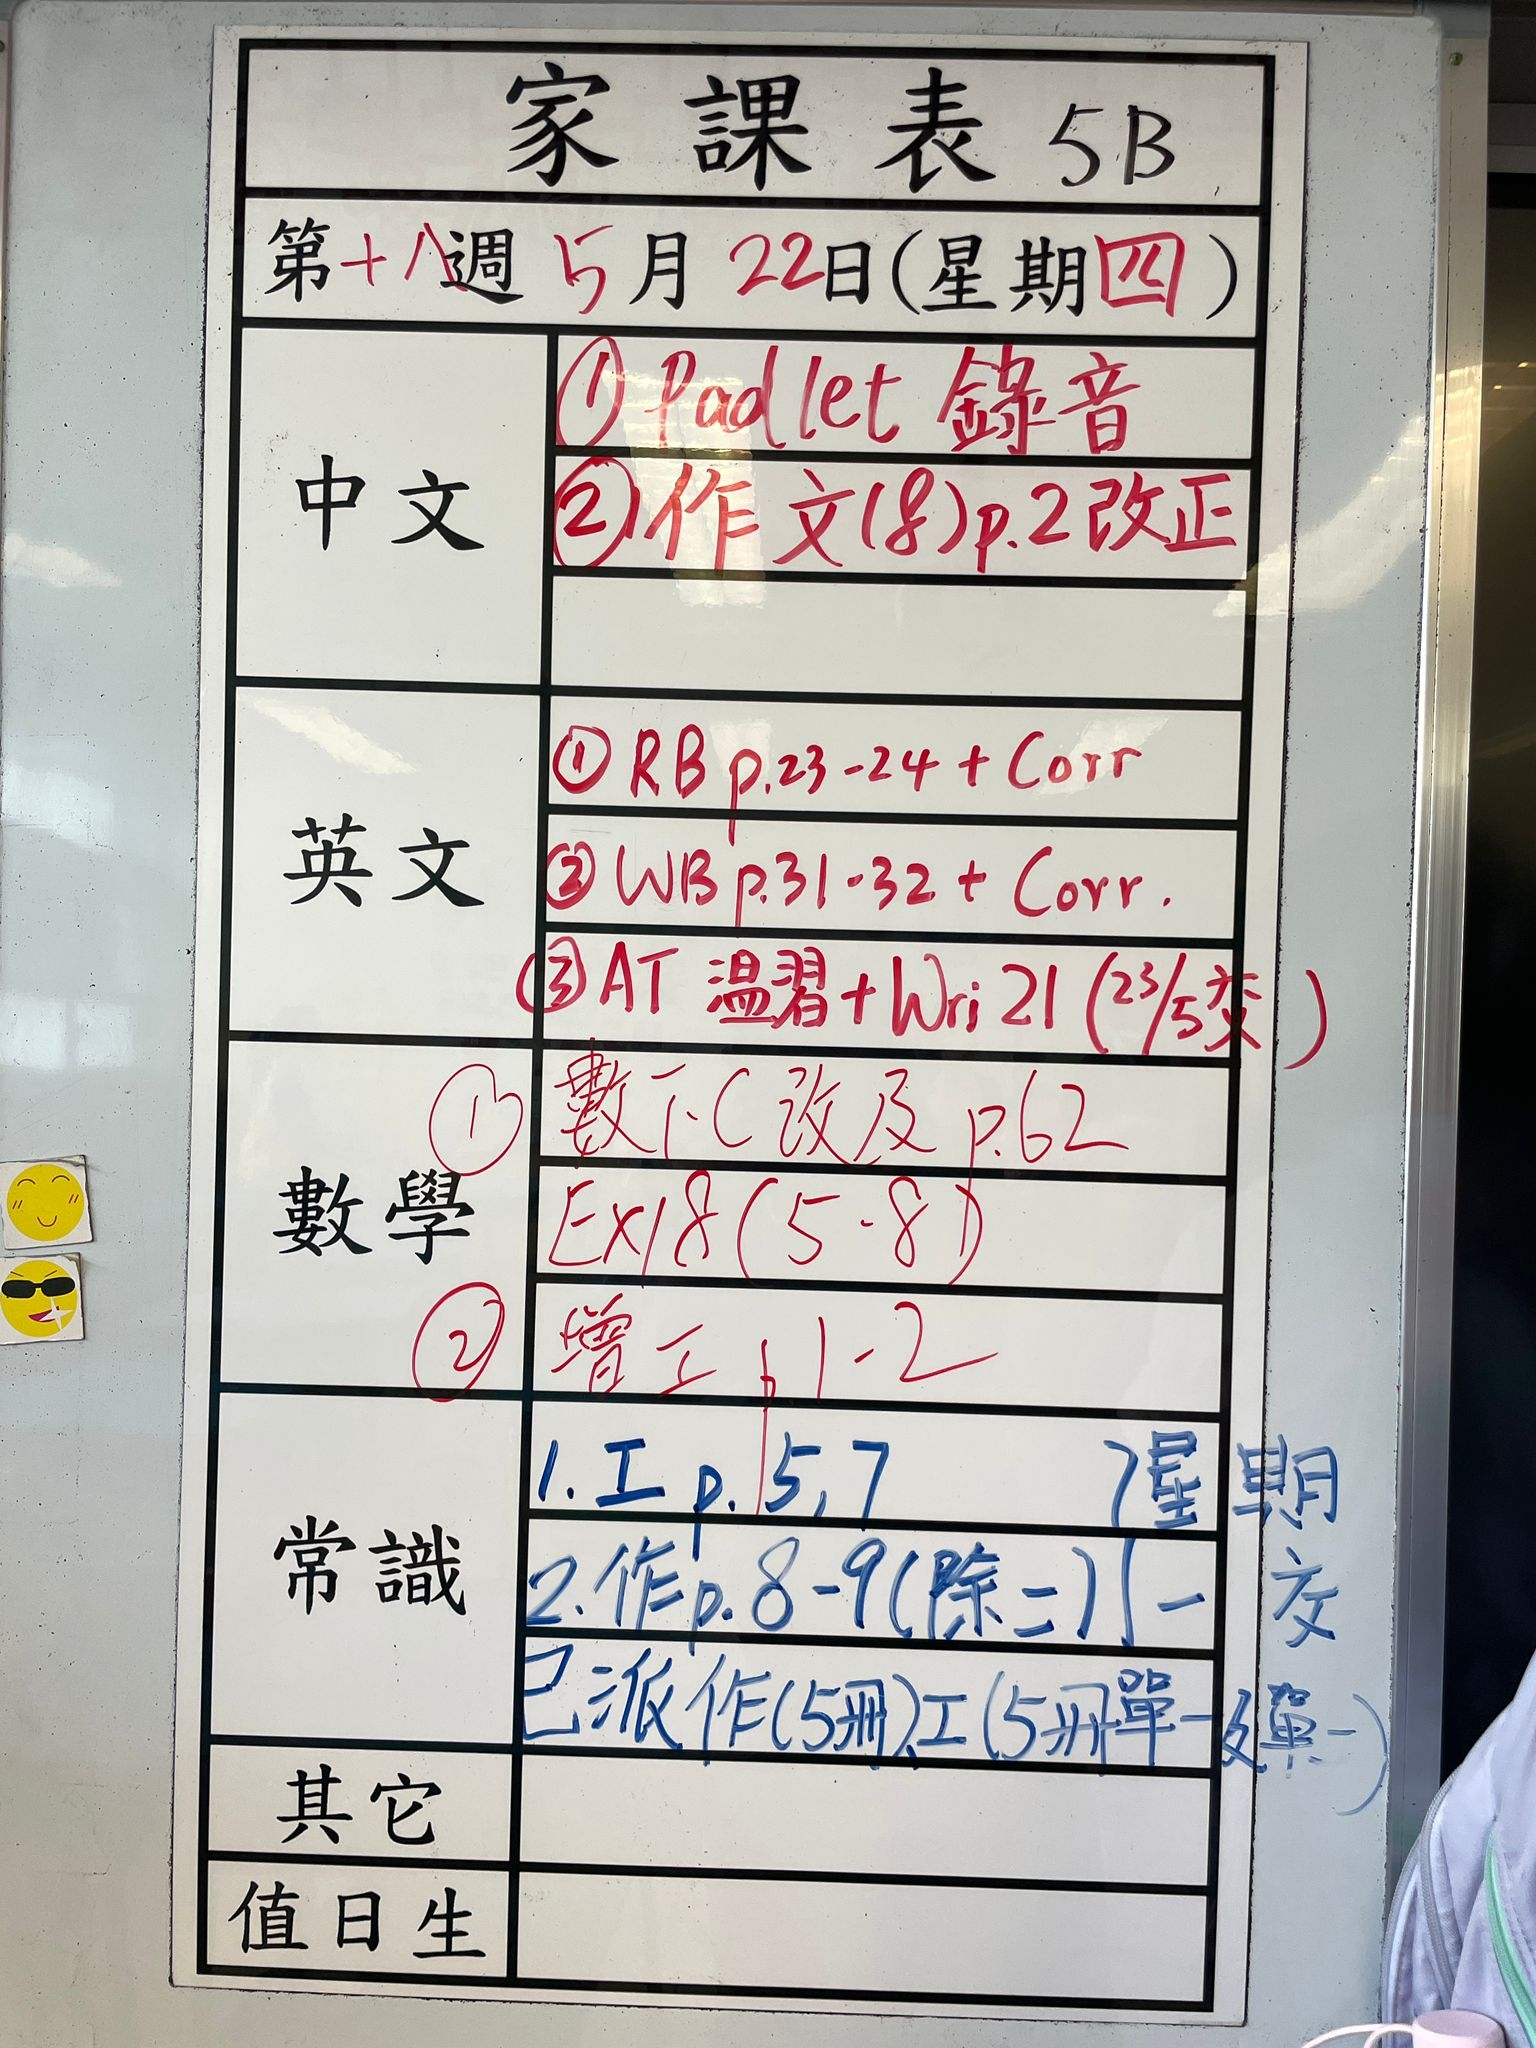 家課表 5B
第十八週 5月22日(星期四)
中文
① Padlet 錄音
② 作文(8)p.2改正
英文
① RB p.23-24 + Corr
② WB p.31-32 + Corr.
③ AT 溫習 + Wri 21 (23/5交)
數學
① 數下C 改及 p.62
Ex18(5-8)
② 增工 p.1-2
常識
1. 工 p. 5,7
2. 作 p. 8-9(除二)
} 星期一交
已派作(5冊)、工(5冊單一及單一)
其它
值日生